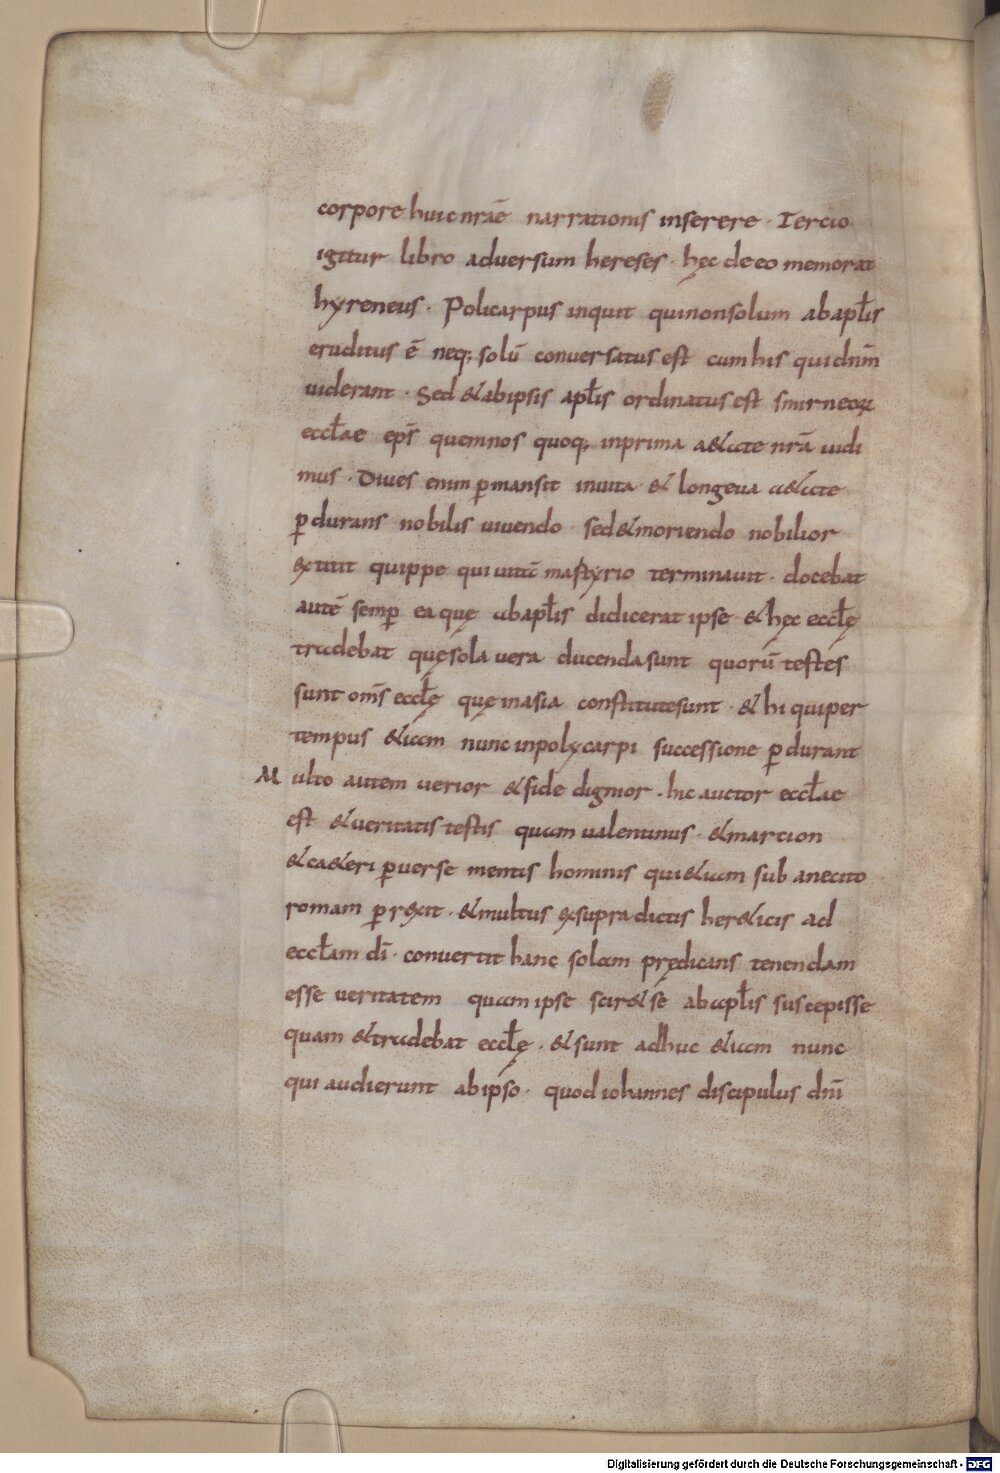 corpore huic nr̄ae narrationis inserere · Tercio
igitur libro adversum hereses · hęc de eo memorat
hyreneus · Policarpus inquit qui non solum ab apl̄is
eruditus ē neq; solū conversatus est cum his qui dnm̄
viderant · Sed & ab ipsis apl̄is ordinatus est smirneoꝝ
eccl̄ae ep̄s quem nos quoq; in prima a&ate nr̄a vidi
mus · Diues enim ꝑmansit in vita & longeva a&ate
ꝑdurans nobilis vivendo · sed & moriendo nobilior
extitit quippe qui vitā mastyrio terminavit · docebat
autē semꝑ ea quę ab apl̄is didicerat ipse & hęc eccl̄ę
tradebat quę sola vera ducenda sunt quorū testes
sunt om̄s eccl̄ę quę in asia constitutesunt · & hi qui per
tempus &iam nunc in polycarpi successione ꝑdurant
Multo autem verior & fide dignior · hic auctor eccl̄ae
est & veritatis testis quam valentinus · & marcion
& ca&eri ꝑverse mentis hominis qui &iam sub anecito
romam ꝑrexit · & multus ex supra dictis her&icis ad
eccl̄am dī · convertit hanc solam prędicans tenendam
esse veritatem quam ipse scir& se ab apl̄is suscepisse
quam & tradebat eccl̄ę · & sunt adhuc &iam nunc
qui audierunt ab ipso · quod iohannes discipulus dnī
Digitalisierung gefördert durch die Deutsche Forschungsgemeinschaft - DFG